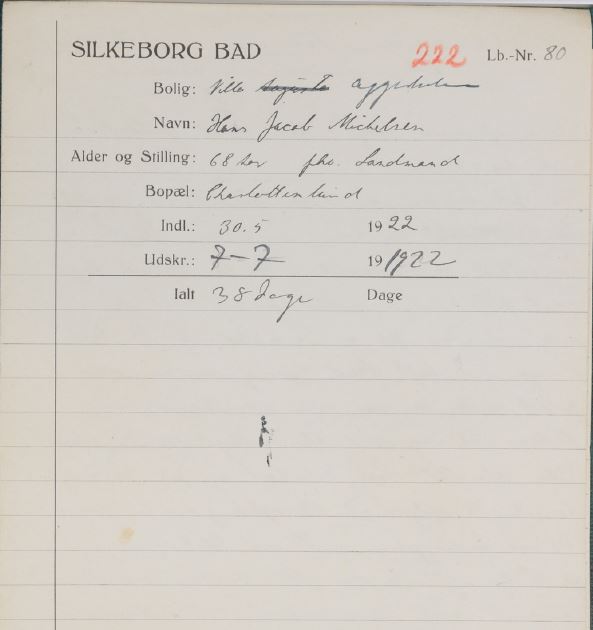 SILKEBORG BAD 222 Lb.-Nr. 80
Bolig: Villa
Navn: Hans Jacob Michelsen
Alder og Stilling: 68 Aar fhv. Landmand
Bopæl: Charlottenlund
Indl.: 30.5 1922
Udskr.: 7-7 19 1922
Ialt 38 Dage Dage